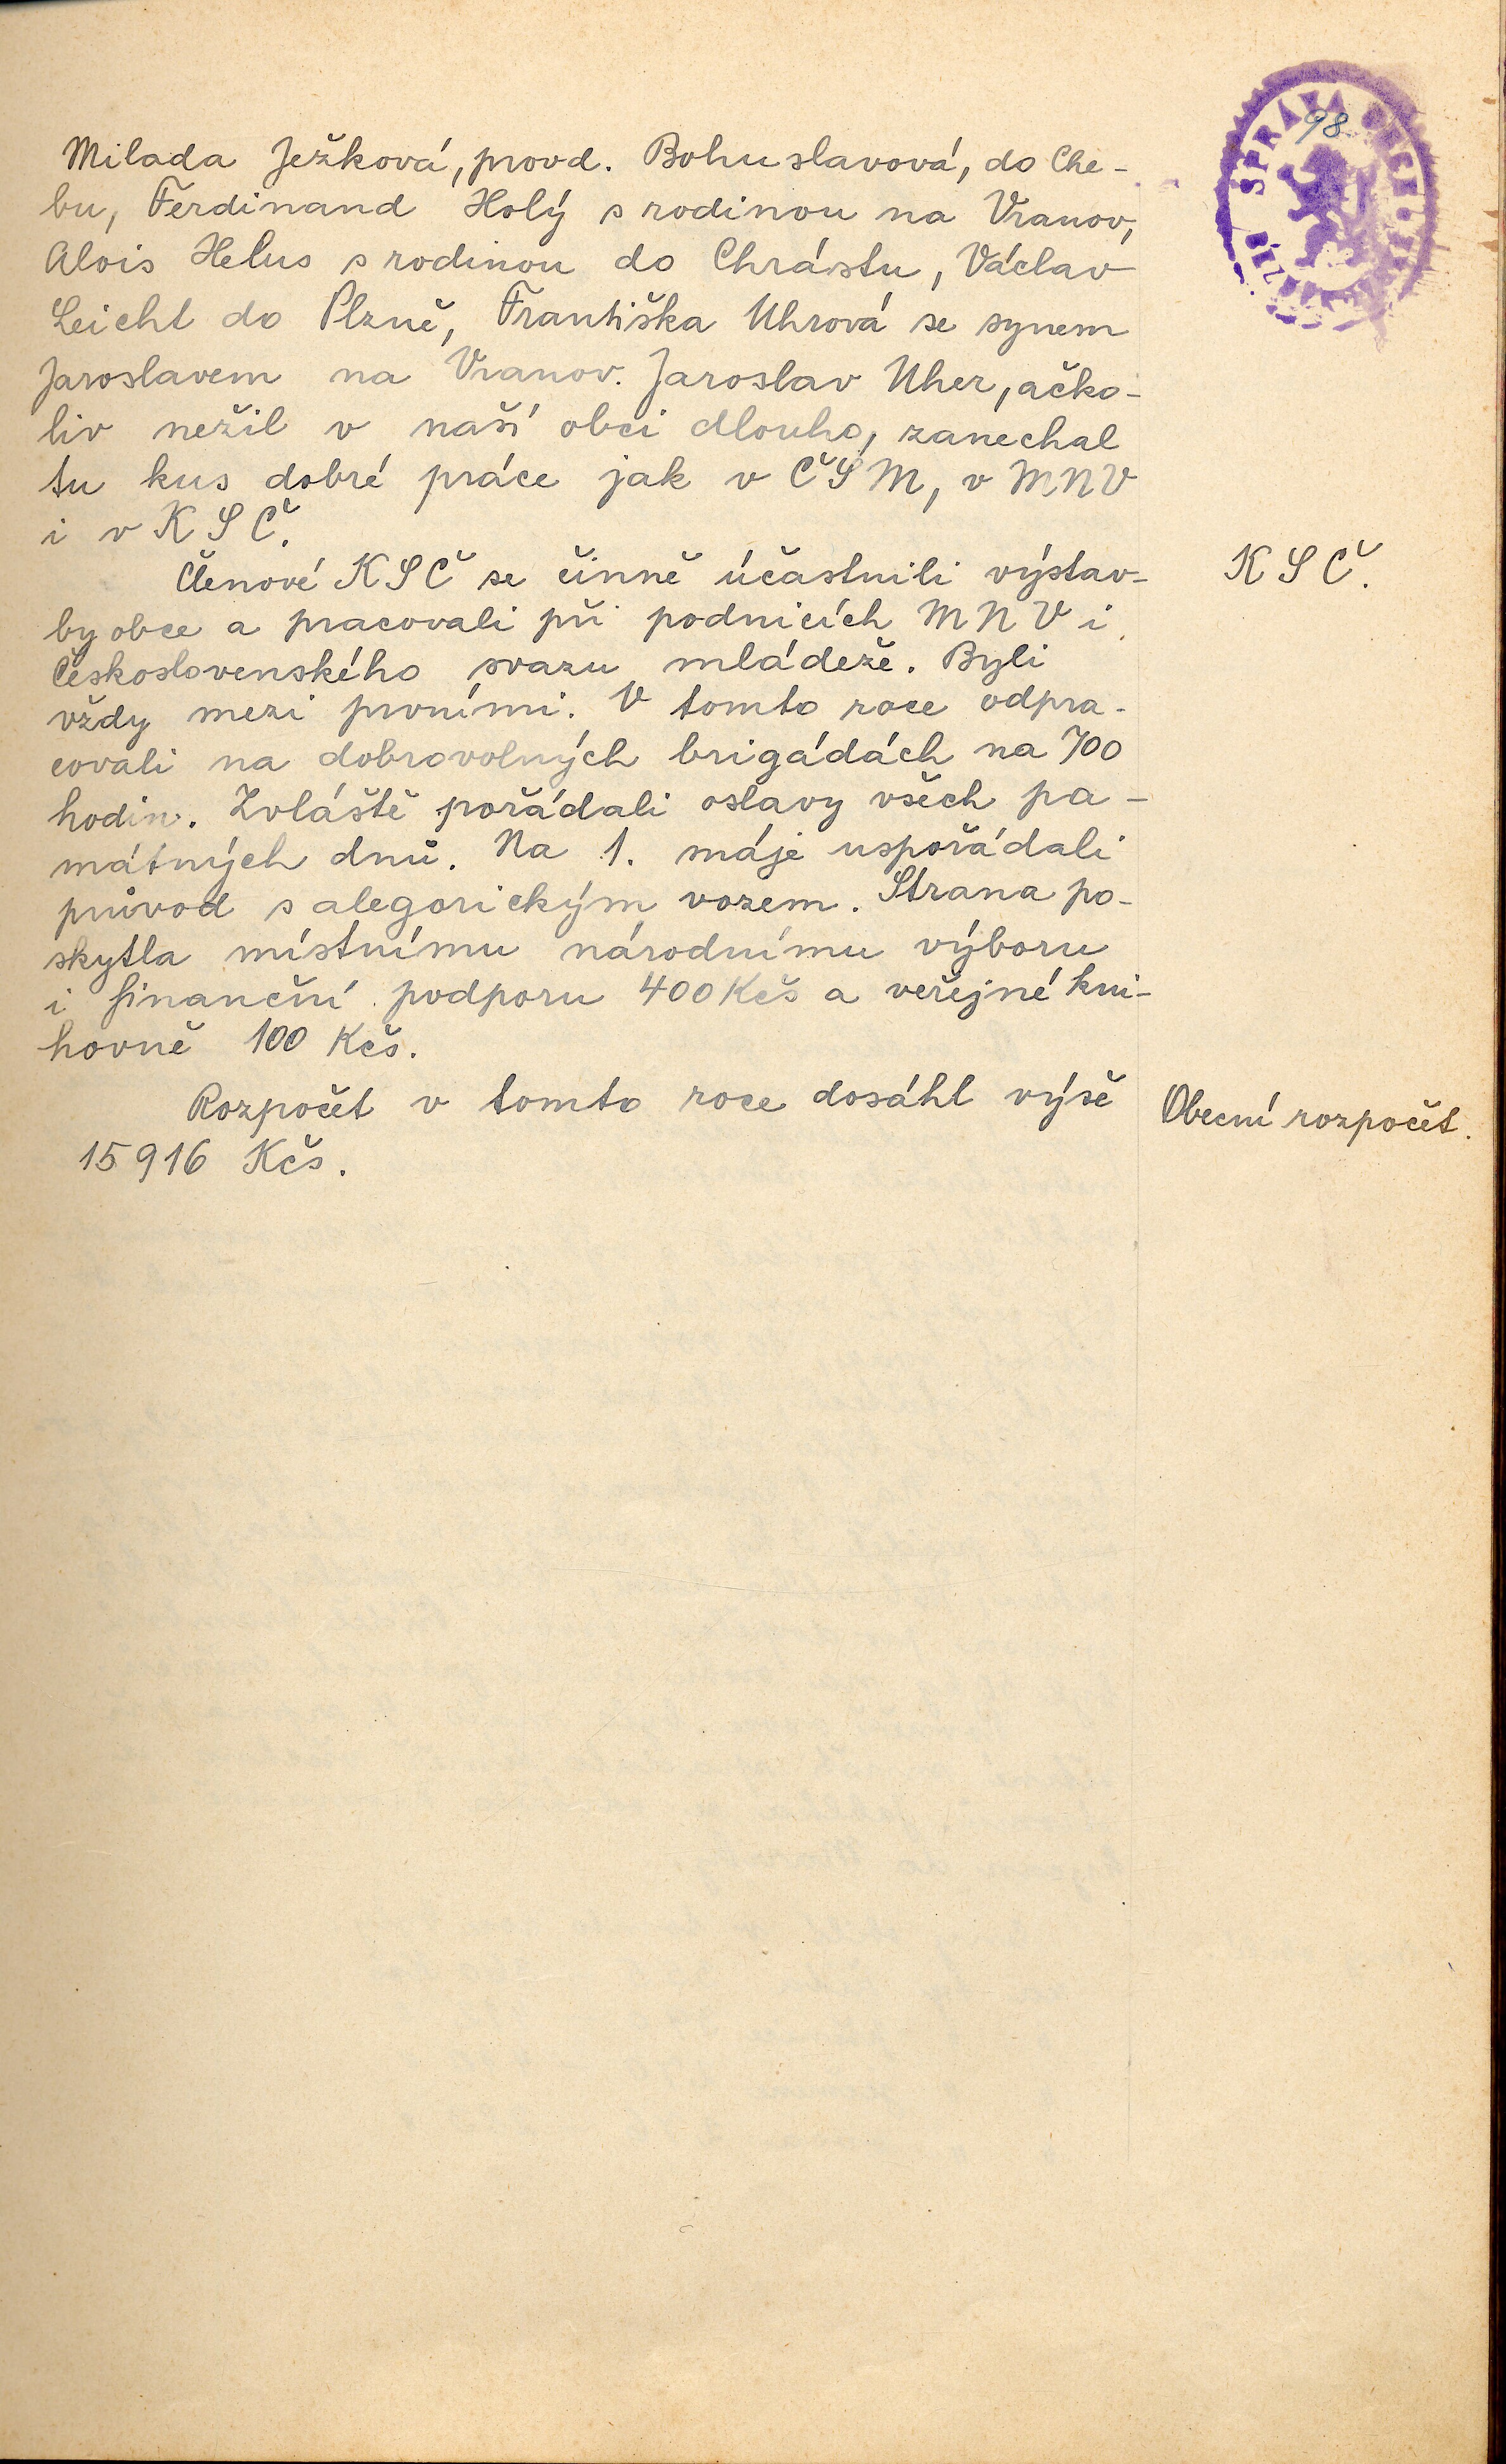 98
SPRÁVA OBCE
Milada Ježková, provd. Bohuslavová, do Che-
bu, Ferdinand Holý s rodinou na Vranov,
Alois Helus s rodinou do Chrástu, Václav
Leicht do Plzně, Františka Uhrová se synem
Jaroslavem na Vranov. Jaroslav Uher, ačko-
liv nežil v naší obci dlouho, zanechal
tu kus dobré práce jak v ČSM, v MNV
i v KSČ.
Členové KSČ se činně účastnili výstav-
KSČ.
by obce a pracovali při podnicích MNV i
Československého svazu mládeže. Byli
vždy mezi prvními. V tomto roce odpra-
covali na dobrovolných brigádách na 700
hodin. Zvláště pořádali oslavy všech pa-
mátných dnů. Na 1. máje uspořádali
průvod s alegorickým vozem. Strana po-
skytla místnímu národnímu výboru
i finanční podporu 400 Kčs a veřejné kni-
hovně 100 Kčs.
Rozpočet v tomto roce dosáhl výše
Obecní rozpočet.
15916 Kčs.